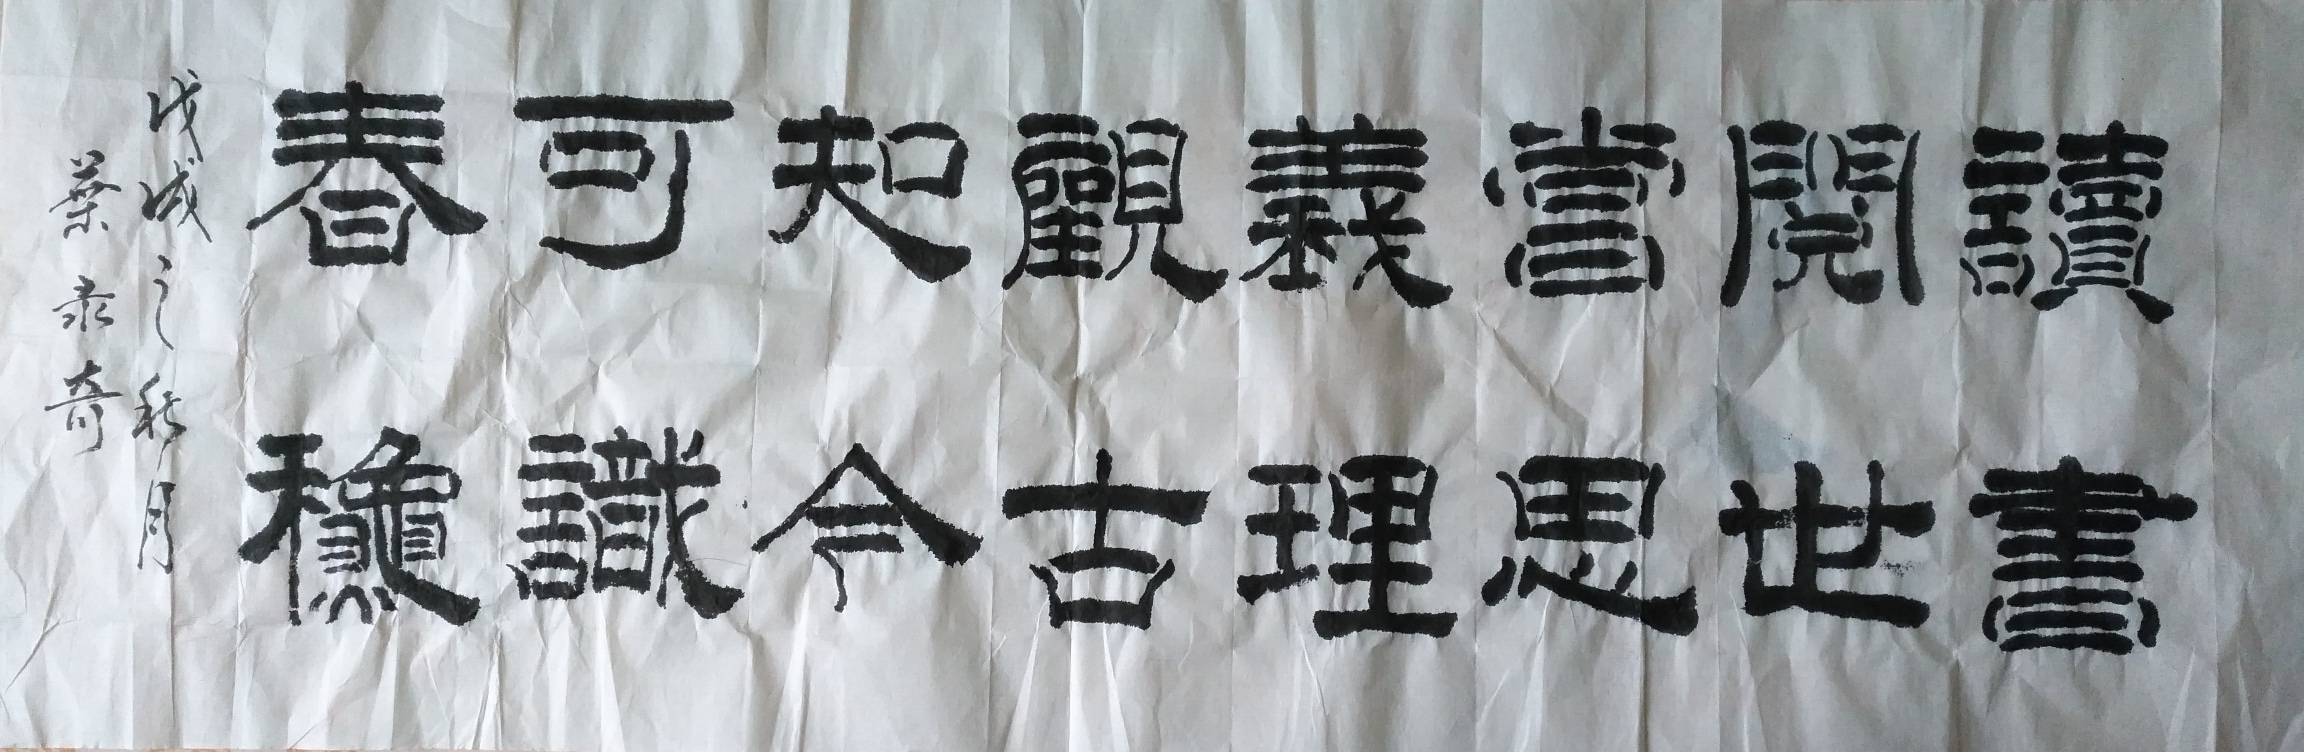 讀書
閱世
嘗思
義理
觀古
知今
可識
春穐
戊戌之秋月
葉永奇